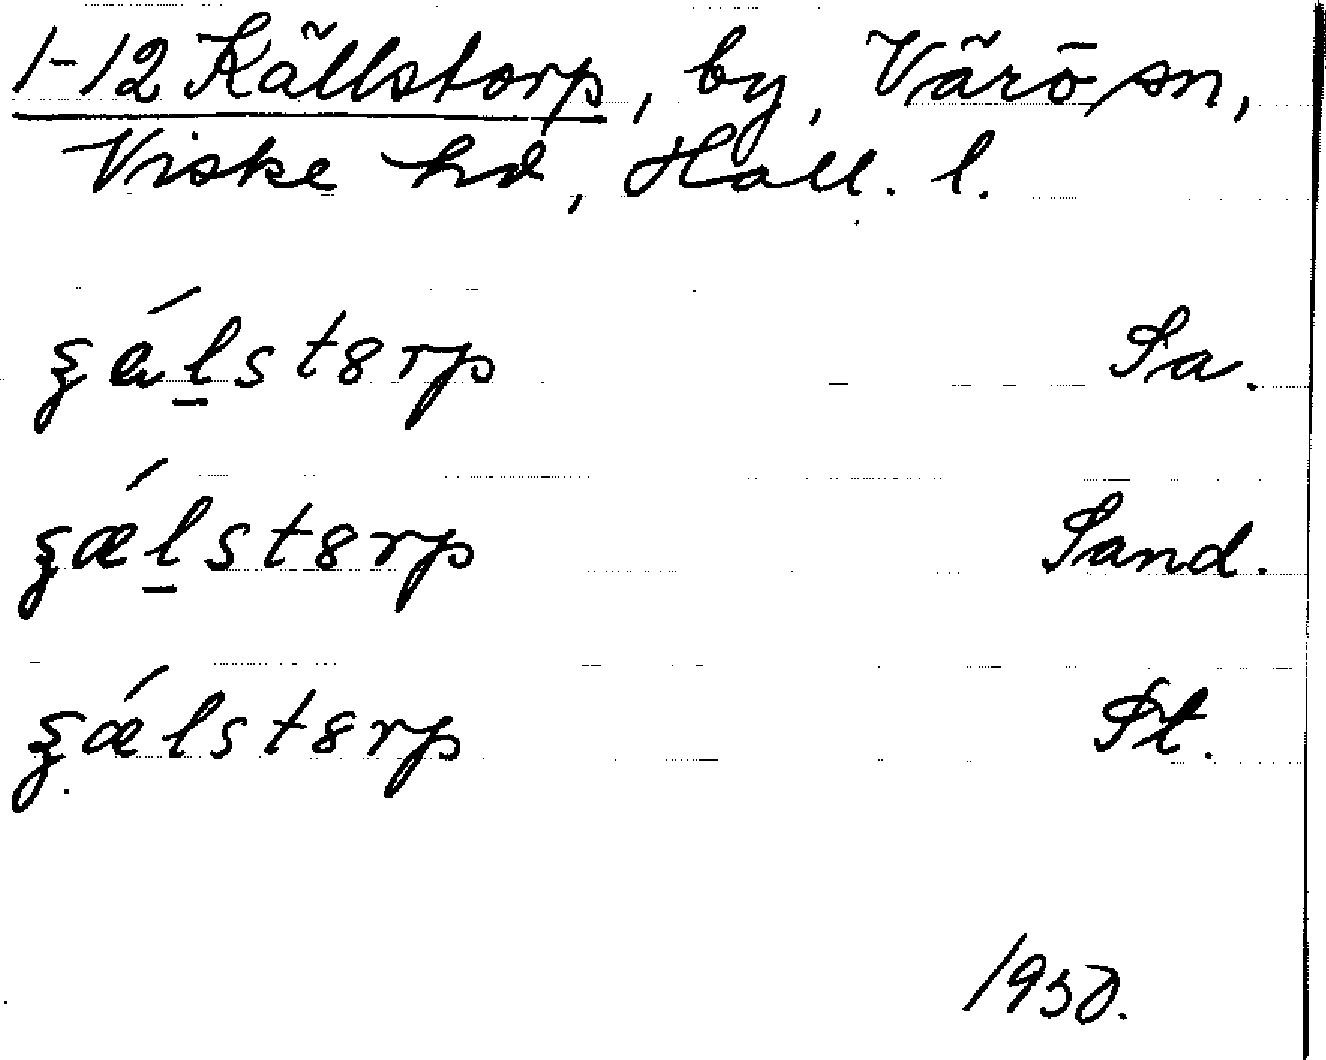 1-12 Källstorp, by, Värö sn,
Viske hd, Hall. l.
ɕǽl̲st8rp Sa.
ɕǽl̲st8rp Sand.
ɕǽlst8rp St.
1950.